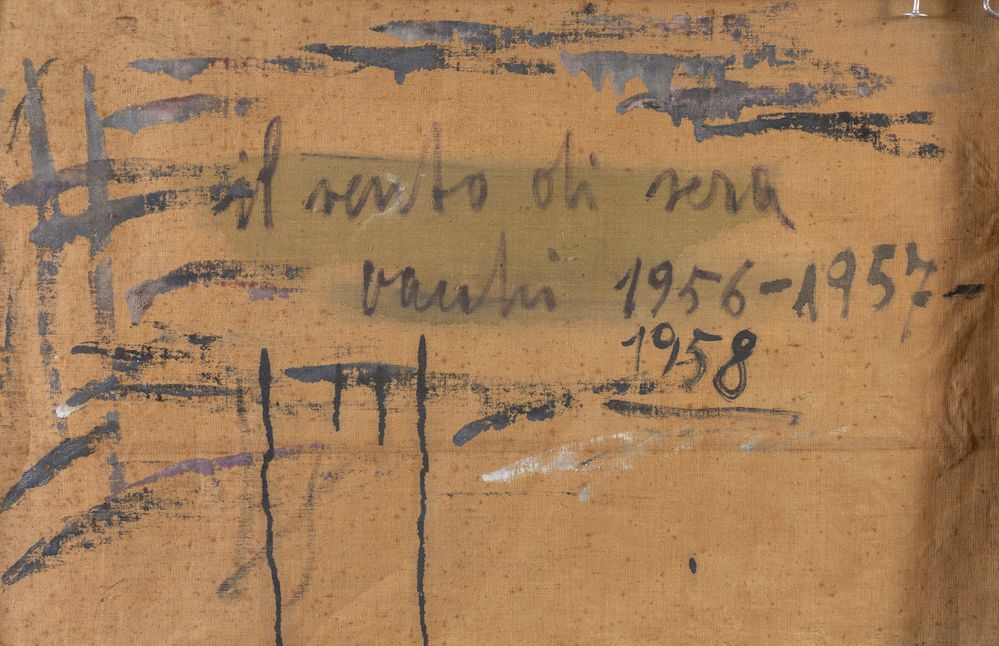 il vento di sera
vanhi 1956-1957-
1958